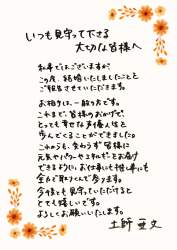 いつも見守って下さる
大切な皆様へ
私事ではございますが
この度、結婚いたしましたことを
ご報告させていただきます。
お相手は、一般の方です。
これまで、皆様のおかげで、
とっても幸せな声優人生を
歩んでくることができました。
これからも、変わらず皆様に
元気やパワーやエネルギーをお届け
できるように、お仕事にも推し事にも
全力で取りくんで参ります。
今後とも見守っていただけると
とても嬉しいです。
よろしくお願いいたします。
土師亜文